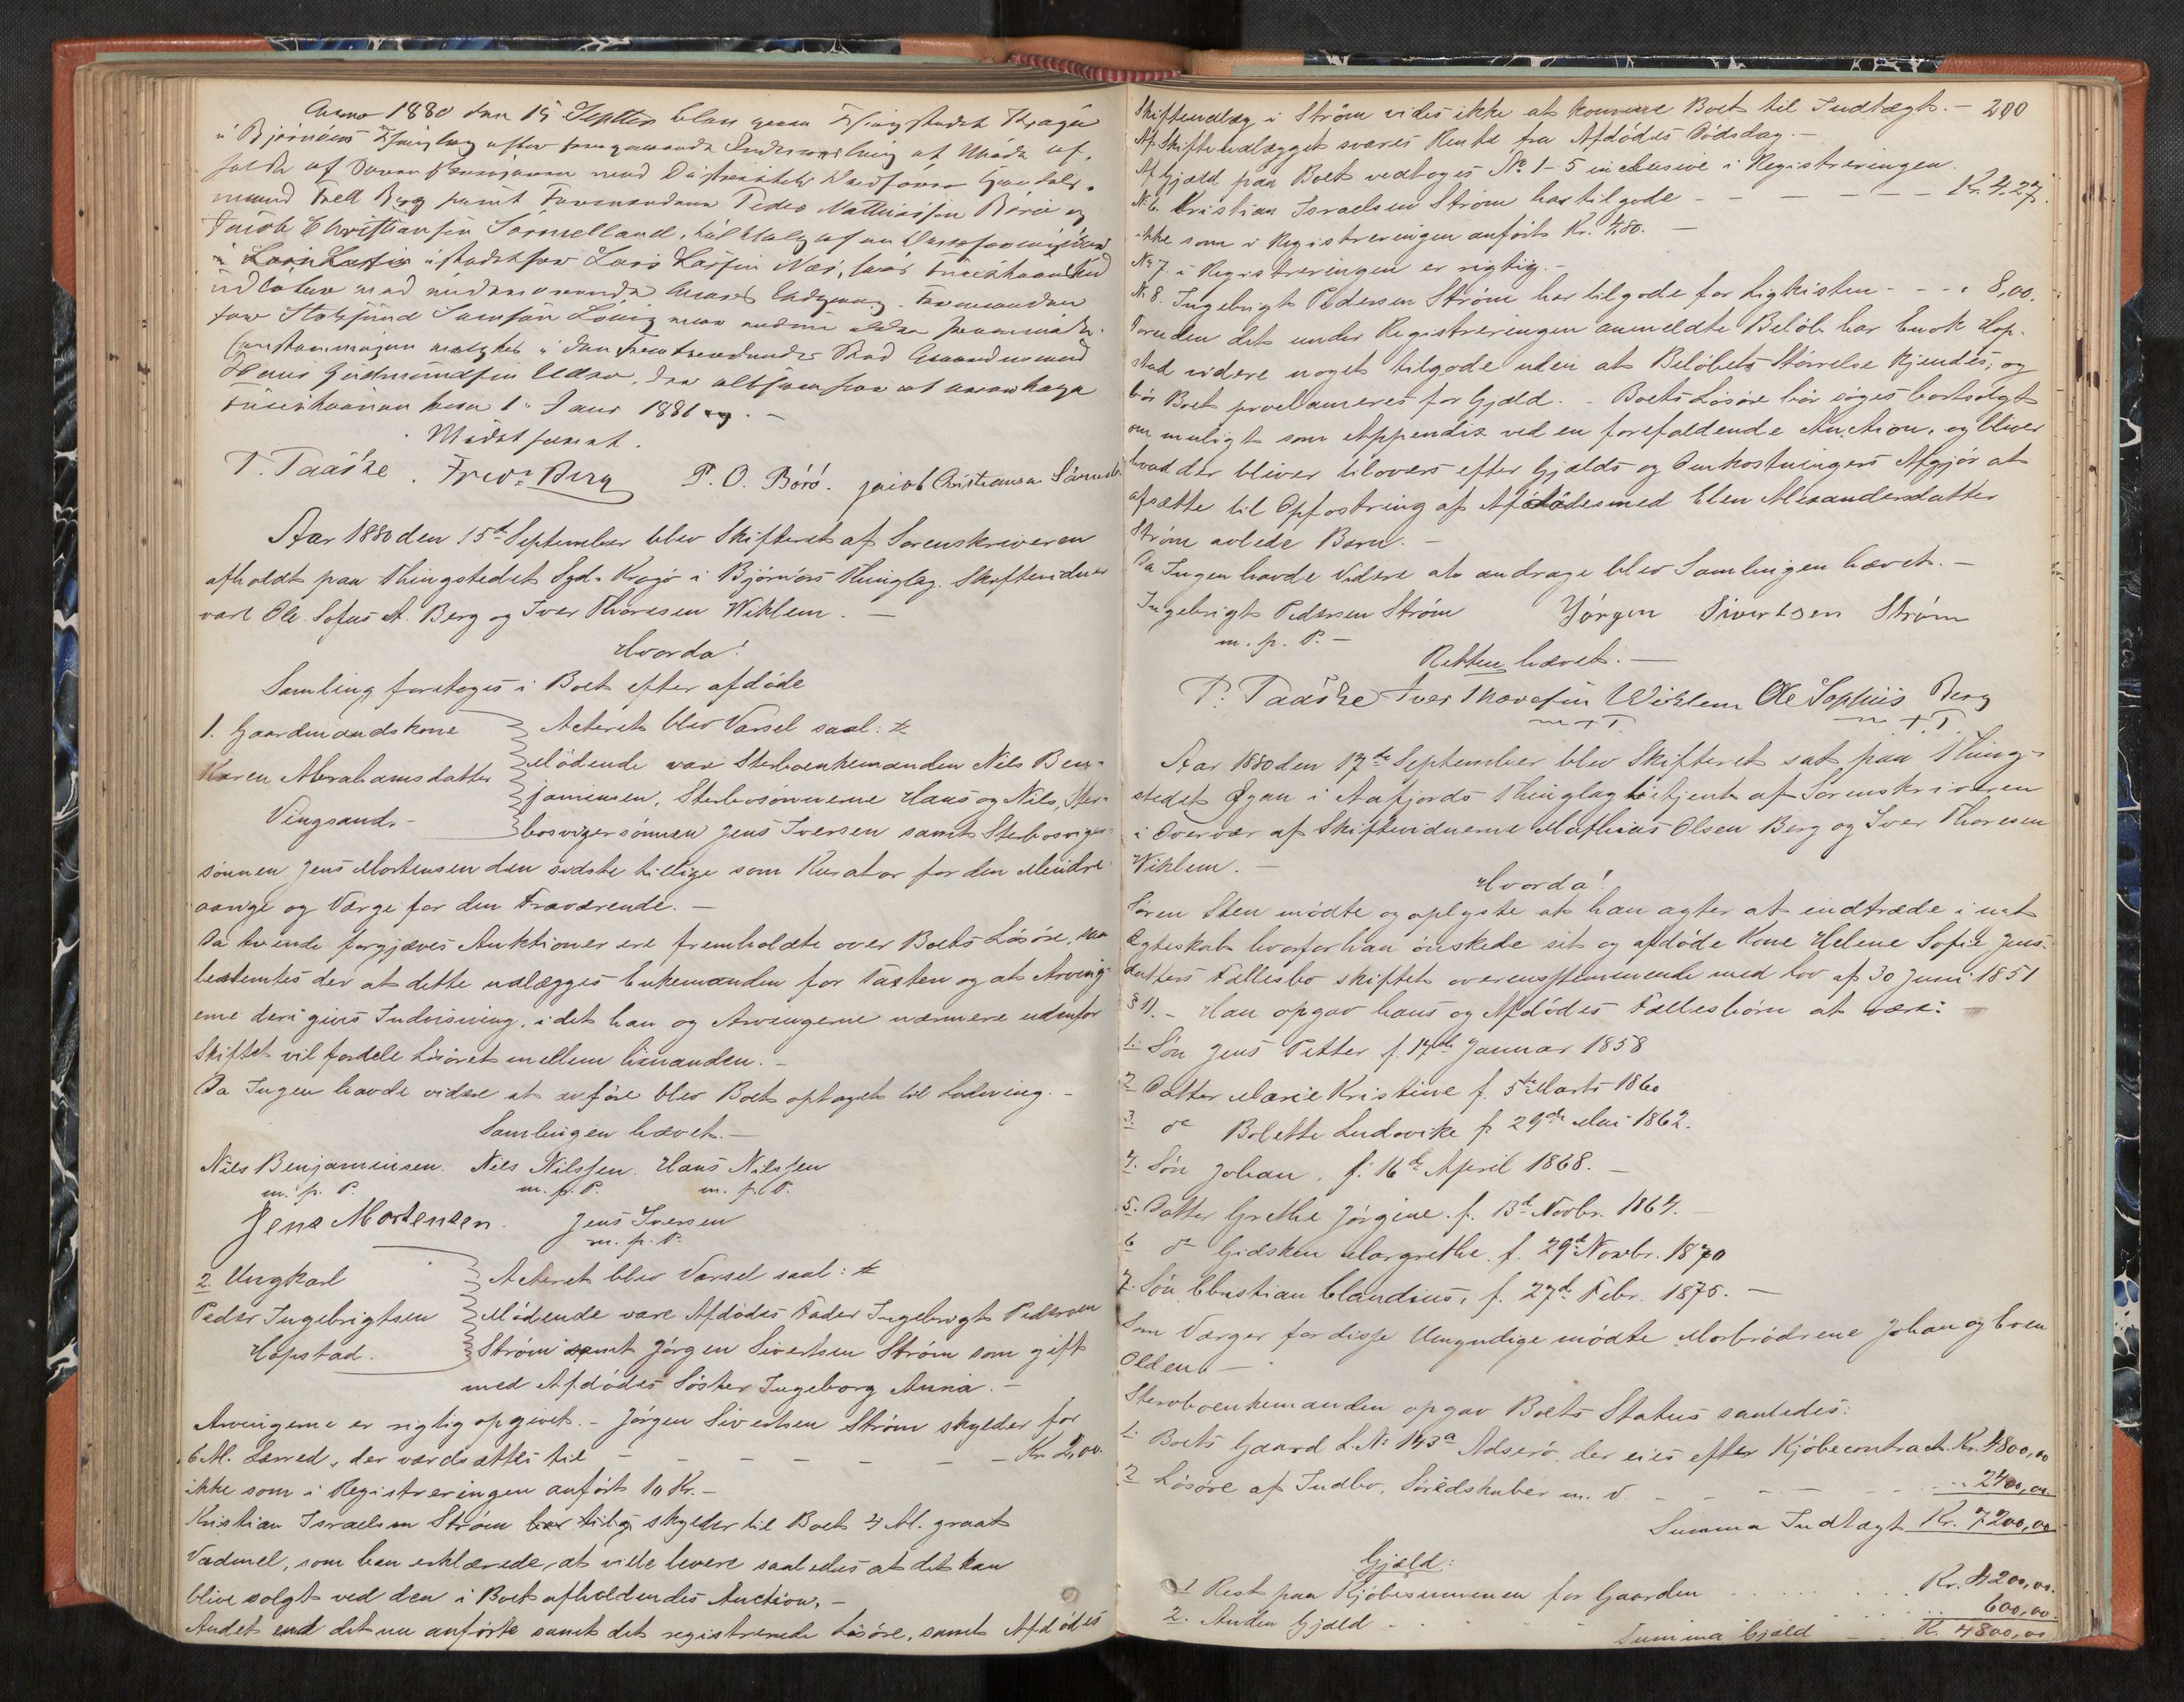 Anno 1880 den 15 Septbr blev paa Thingstedet Kragø
i Bjørnørs Thinglag efter foregaaende
mand Fredr Berg samt Formændene Peder Mathiassen Børø og
Jacob Christiansen Sørmelland,
i Lars Larsen istedetfor Lars Larsen Næs, hvis Functionstid
udløber med indeværende Aars Udgang. Formanden
for
Hans Gudmundsen
Functionen fra 1. Janr 1881 og. -
Mødet hævet.
P. Taaske. Fredr. Berg P. O. Børø. jacob Christiansen Sørmell
Aar 1880 den 15de September blev Skifteret af Sorenskriveren
afholdt paa Thingstedet Syd-Kragø i Bjørnørs Thinglag. Skiftevidner
vare Ole Sofus A. Berg og Iver Thoresen Wiklem. -
Hvorda!
Samling foretoges i Boet efter afdøde
1. Gaardmandskone
Karen Abrahamsdatter
Vingsand. -
Acteret blev Varsel saal: #
Mødende var Sterboenkemanden Nils Ben-
jaminsen, Sterbosønnerne Hans og Nils, Ster-
bosvigersønnen Jens Iversen samt Sterbosviger-
sønnen Jens Mortensen den sidste tillige som Kurator for den Mindre-
aarige og Værge for den Fraværende. -
Da tvende forgjæves Auktioner ere fremholdte over Boets Løsøre, saa
bestemtes der at dette udlægges Enkemanden for Taxten og at Arving-
erne deri gives Indvisning, idet han og Arvingerne nærmere udenfor
Skiftet vil fordele Løsøret mellem hinanden. -
Da Ingen havde videre at anføre blev Boet optaget til Lodning. -
Samlingen hævet. -
Nils Benjaminsen. Nils Nilssen. Hans Nilssen
m. p. P. m. p. P. m. p. P.
Jens Mortensen. Jens Iversen
m. p. P.
2. Ungkarl
Peder Ingebrigtsen
Hopstad.
Acteret blev Varsel saal: #
Mødende vare Afdødes Fader Ingebrigt Pedersen
Strøm samt Jørgen Sivertsen Strøm som gift
med Afdødes Søster Ingeborg Anna. -
Arvingerne er rigtig opgivet. - Jørgen Sivertsen Strøm skylder for
6 Al. Lærred, der værdsættes til - - - - - - Kr. 2,00.
ikke som i Registreringen anført 10 Kr. -
Kristian Israelsen Strøm har tilg skylder til Boet 4 Al. graat
Vadmel, som han erklærede, at ville levere saaledes at det kan
blive solgt ved den i Boet afholdendes Auction. -
Andet end det nu anførte samt det registrerede Løsøre, samt Afdødes
Skifteudlæg i Strøm vides ikke at komme Boet til Indtægt. - 200
Af Skifteudlægget svares Rente fra Afdødes Dødsdag. -
Af Gjæld paa Boet vedtoges No 1-5 inclusive i Registreringen.
No 6. Kristian Israelsen Strøm har tilgode - - - - - Kr. 4.27.
ikke som i Registreringen anført Kr. 4.80. -
No 7. i Registreringen er rigtig. -
No 8. Ingebrigt Pedersen Strøm har tilgode for Ligkisten - - - " 8,00.
Foruden det under Registreringen anmeldte Beløb har Enok Hop-
stad videre noget tilgode uden at Beløbets Størrelse kjendes, og
bør Boet proclameres for Gjæld. - Boets Løsøre bør søges bortsolgt
om muligt som Appendix ved en forefaldende Auction, og bliver
hvad der bliver tilovers efter Gjælds og Omkostningers Afgjør at
afsætte til Opfostring af Afdødes med Elen Alexandersdatter
Strøm avlede Barn. -
Da Ingen havde Videre at andrage blev Samlingen hævet. -
Ingebrigt Pedersen Strøm Jørgen Sivertsen Strøm
m. p. P. -
Retten hævet. -
P. Taaske Iver Thoresen Wiklem Ole Sophus Berg
Aar 1880 den 17de September blev Skifteret sat paa Thing-
stedet i Aafjords Thinglag betjent af Sorenskriveren
i Overvær af Skiftevidnerne Mathias Olsen Berg og Iver Thoresen
Wiklem. -
Hvorda!
Søren Sten mødte og oplyste at han agter at indtræde i nyt
Ægteskab hvorfor han ønskede sit og afdøde Kone Helene Sofie Jens-
datters Fællesbo skiftet overensstemmende med Lov af 30 Juni 1851
§ 11. - Han opgav hans og Afdødes Fællesbørn at være:
1. Søn Jens Petter f. 17de Januar 1858
2 Datter Marie Kristine f. 5te Marts 1860
3. do Bolette Ludovike f. 29de Mai 1862.
4. Søn Johan, f. 16de April 1868. -
5. Datter Grethe Jørgine. f. 13de Novbr. 1864. -
6 do Gidsken Margrethe. f. 29de Novbr. 1870
7. Søn Christian Claudius, f. 27de Febr. 1875. -
Som Værger for disse Umyndige mødte Morbrødrene Johan og Even
Olden. -
Sterboenkemanden opgav Boets Status saaledes:
1. Boets Gaard L.No 143a Adserø, der eies efter Kjøbecontract. Kr. 4800,00
2 Løsøre af Indbo, Søredskaber m. v. - - - - - 2400,00
Summa Indtægt Kr. 7200,00
Gjæld:
1 Rest paa Kjøbesummen for Gaarden . . . . . . Kr. 4200,00.
2. Anden Gjæld . . . . . . 600,00.
Summa Gjæld - K. 4800,00